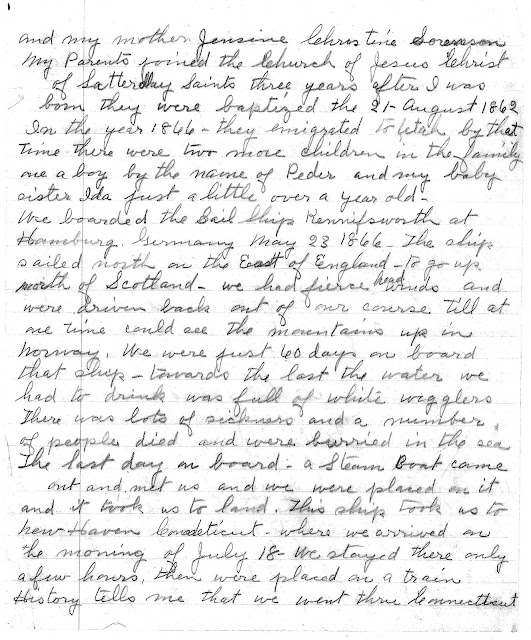 and my mother Jensine Christine Sorenson
My Parents joined the Church of Jesus Christ
of Latterday Saints three years after I was
born they were baptized the 21- August 1862
In the year 1866 - they emigrated to Utah by that
time there were two more children in the family
one a boy by the name of Peder and my baby
sister Ida just a little over a year old -
We boarded the Sail Ship Kennilsworth at
Hamburg. Germany May 23 1866 - The ship
sailed north on the East of England - to go up
north of Scotland - we had fierce head winds and
were driven back out of our course till at
one time could see the mountains up in
Norway. We were just 60 days on board
that ship - towards the last the water we
had to drink was full of white wigglers
There was lots of sickness and a number
of people died and were burried in the sea
The last day on board - a Steam Boat came
out and met us and we were placed on it
and it took us to land. This ship took us to
New Haven Conneticut. where we arrived on
the morning of July 18 - We stayed there only
a few hours, then were placed on a train
History tells me that we went thru Connecticut